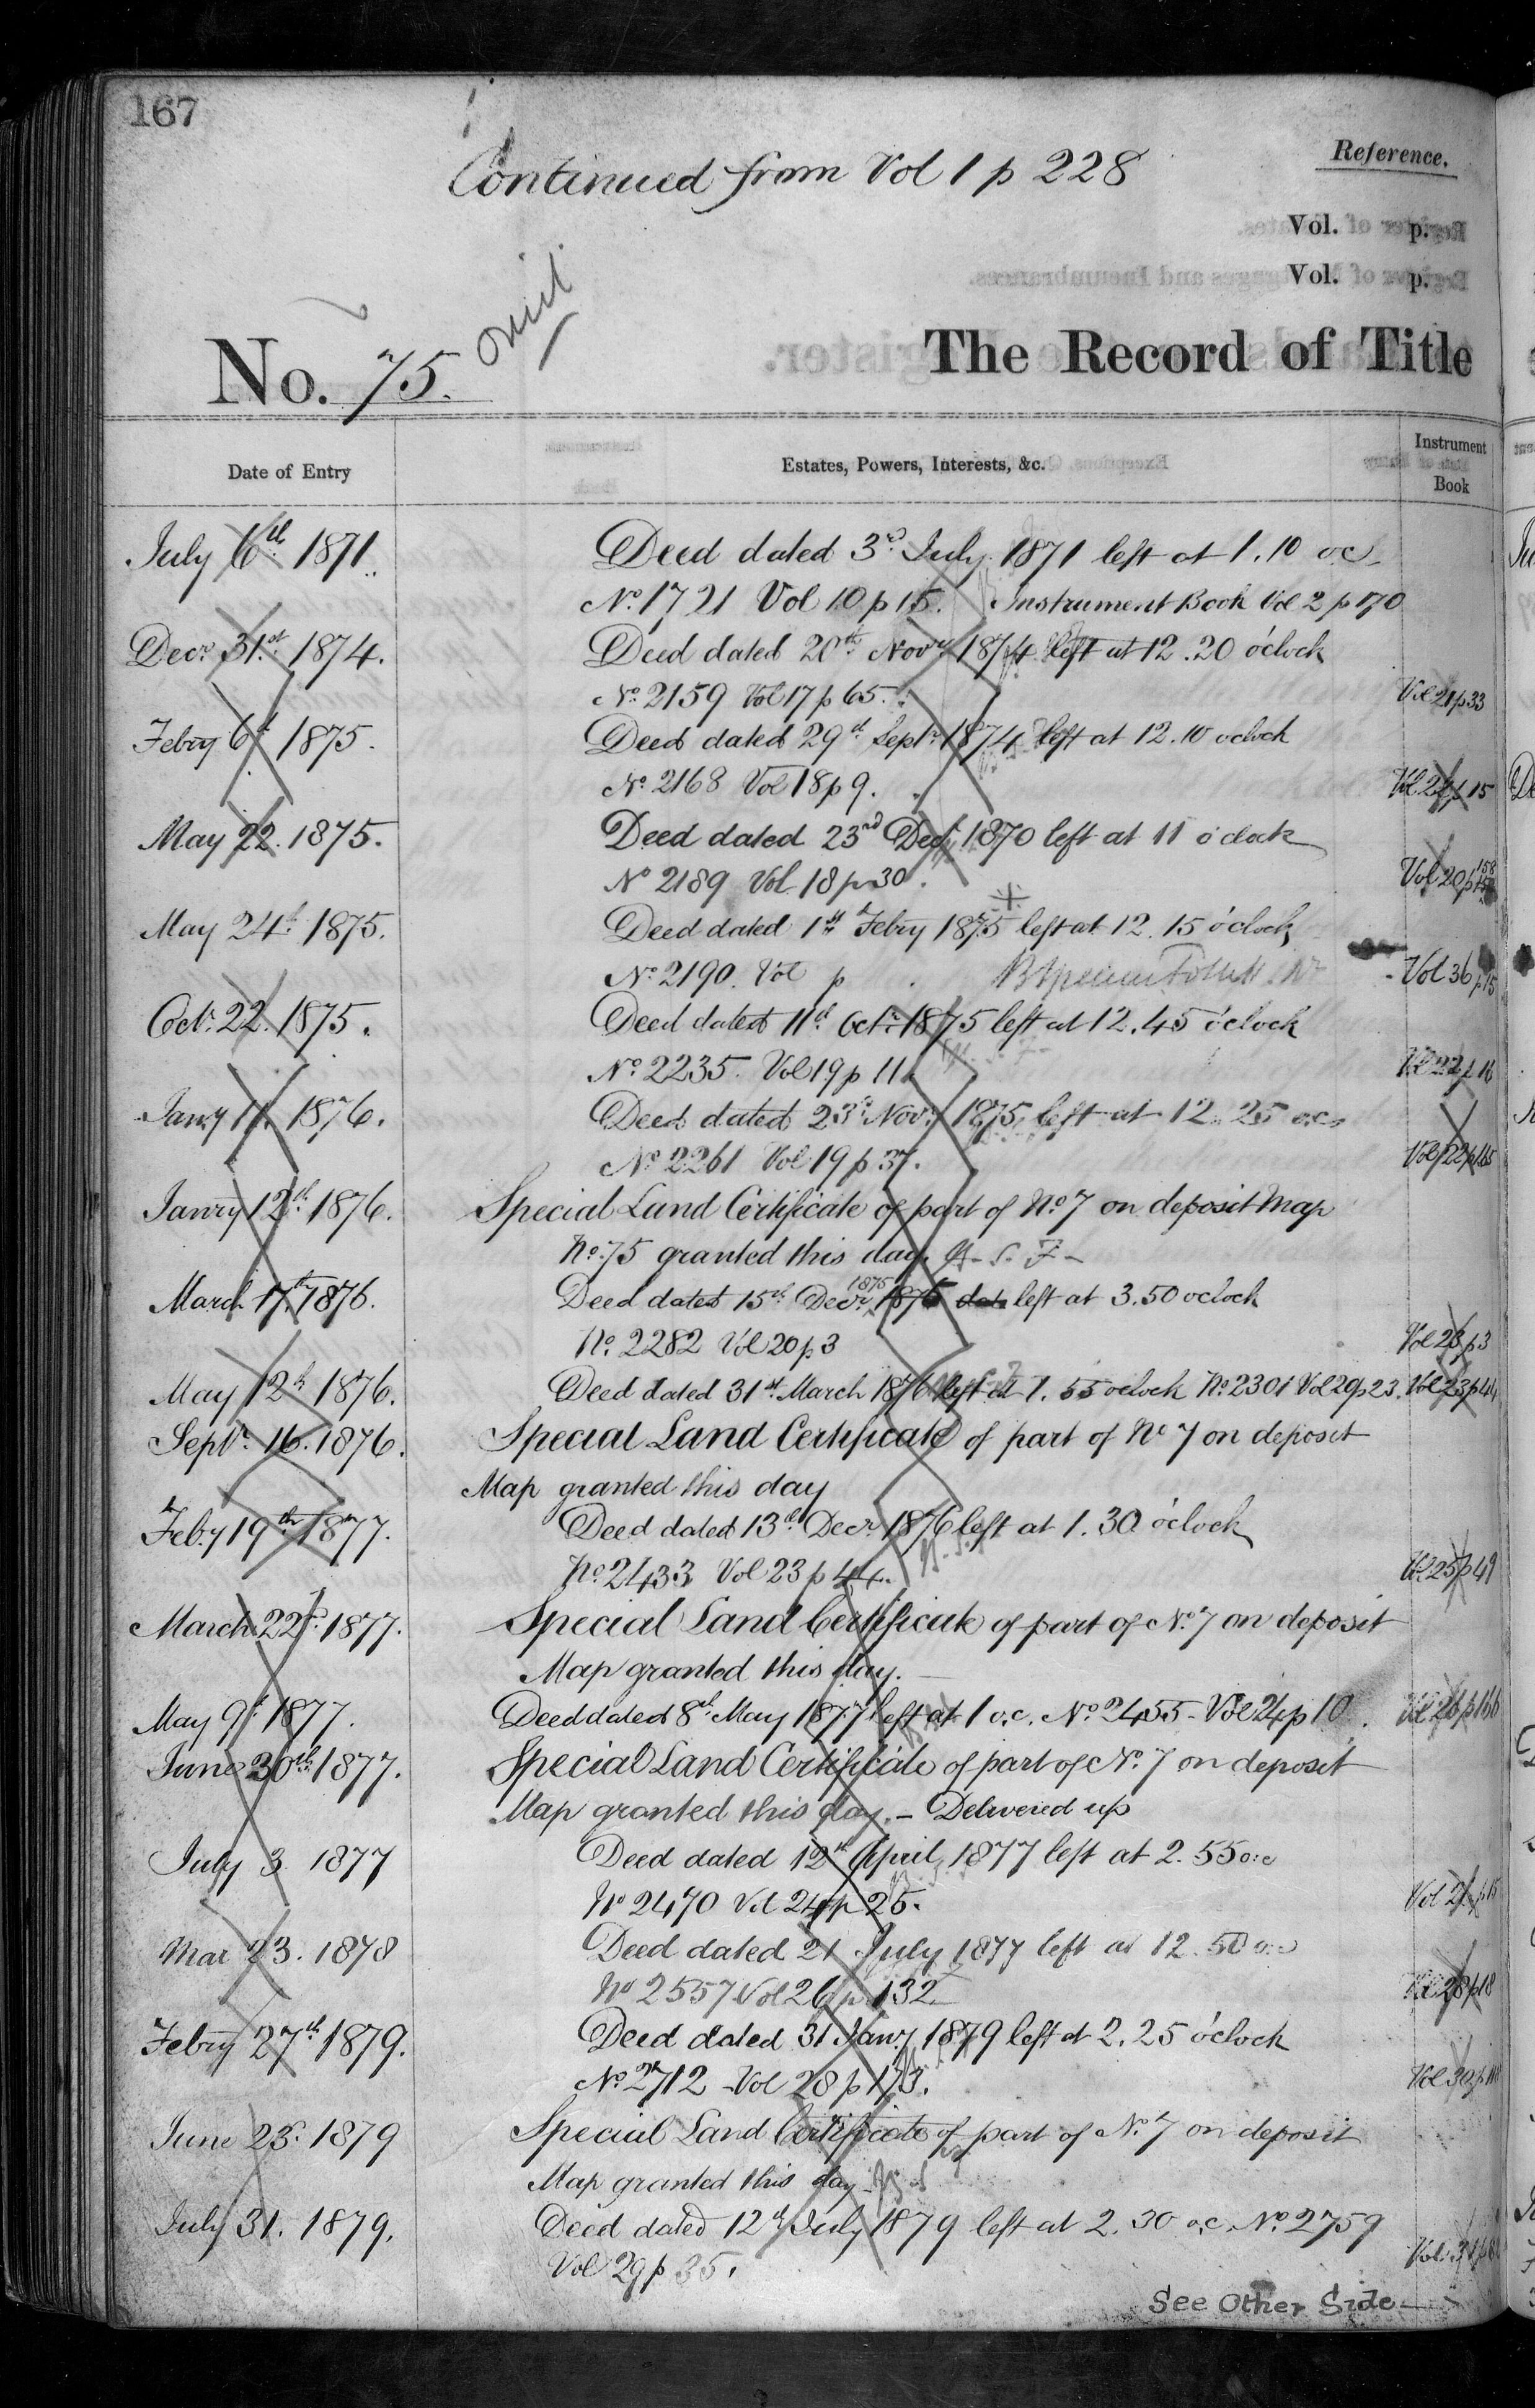 167
Continued from Vol 1 p 228
Reference.
Vol. p.
Vol. p.
No. 75. omit
The Record of Title
Date of Entry
Estates, Powers, Interests, &c.
Instrument Book
July 6th 1871. Deed dated 3rd July 1871 left at 1.10 oc
No. 1721 Vol 10 p 15. Instrument Book Vol 2 p 170
Decr. 31st 1874. Deed dated 20th Novr. 1874 left at 12.20 o'clock
No. 2159 Vol 17 p 65. Vol 21 p 33
Febry 6th 1875. Deed dated 29th Septr. 1874 left at 12.10 oclock
No. 2168 Vol 18 p 9. p 15
May 22. 1875. Deed dated 23rd Decr. 1870 left at 11 o'clock
No 2189 Vol 18 p 30. Vol 20 p 158
May 24th 1875. Deed dated 1st Febry 1875 left at 12.15 o'clock
No. 2190. Vol p Vol 36 p 15
Octr. 22. 1875. Deed dated 11th Octr. 1875 left at 12.45 o'clock
No. 2235. Vol 19 p 11. Vol 22 p 16
Janry 11. 1876. Deed dated 23rd Novr. 1875 left at 12.25 o.c.
No 2261 Vol 19 p 37. Vol 22 p
Janry 12th 1876. Special Land Certificate of part of No. 7 on deposit Map
No. 75 granted this day
March 17th 1876. Deed dated 15th Decr. 1875 1876 left at 3.50 oclock
No. 2282 Vol 20 p 3 Vol 23 p 3
May 12th 1876. Deed dated 31st March 1876 left at 1.55 oclock No. 2301 Vol 20 p 23. Vol 23 p 44
Septr. 16. 1876. Special Land Certificate of part of No 7 on deposit
Map granted this day
Feby 19th 1877. Deed dated 13th Decr. 1876 left at 1.30 o'clock
No. 2433 Vol 23 p 44. Vol 25 p 49
March 22nd 1877. Special Land Certificate of part of No. 7 on deposit
Map granted this day.
May 9th 1877. Deed dated 8th May 1877 left at 1 o.c. No. 2455 - Vol 24 p 10. Vol 26 p 166
June 30th 1877. Special Land Certificate of part of No. 7 on deposit
Map granted this day. - Delivered up
July 3. 1877 Deed dated 12th April 1877 left at 2.55 o.c
No 2470 Vol 24 p 25.
Mar 23. 1878 Deed dated 21 July 1877 left at 12.50 o.c
No 2557 Vol 26 p 132 Vol 28 p 18
Febry 27th 1879. Deed dated 31 Janry 1879 left at 2.25 o'clock
No. 2712 - Vol 28 p 173. Vol 30 p
June 23rd 1879 Special Land Certificate of part of No. 7 on deposit
Map granted this day
July 31. 1879. Deed dated 12th July 1879 left at 2.30 o.c. No. 2759
Vol 29 p 35.
See Other Side